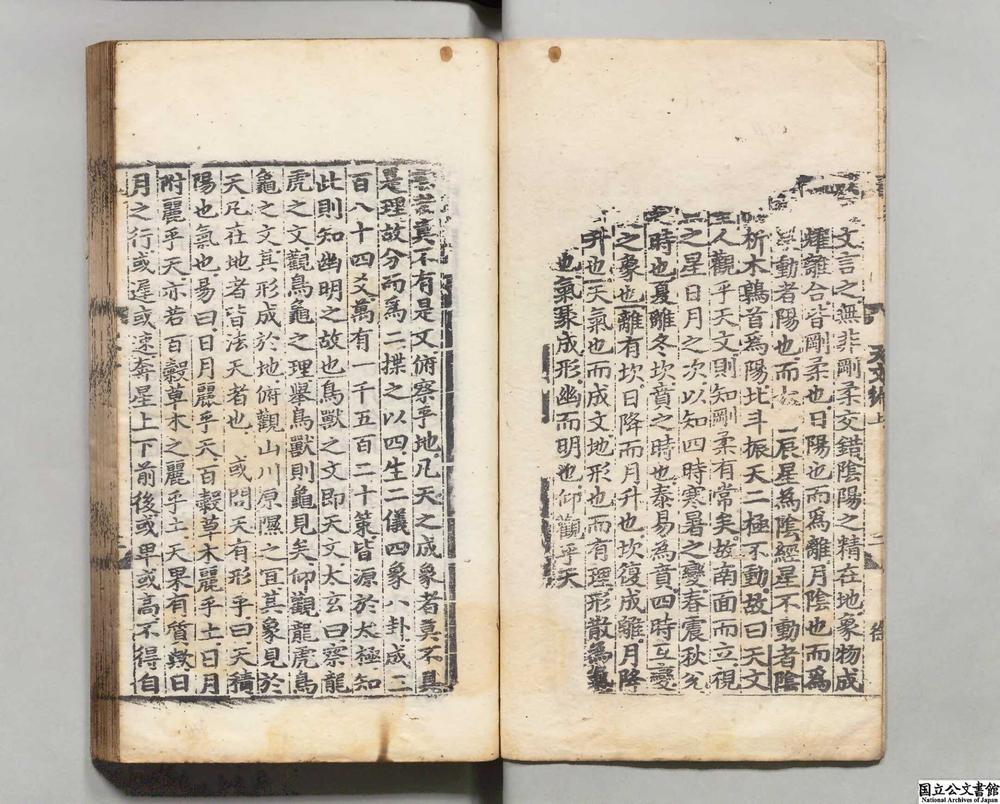 文言之無非剛柔交錯陰陽之精在地象物成
耀離合皆剛柔也日陽也而爲離月陰也而爲
動者陽也而 辰星爲陰經星不動者陰
析木鶉首爲陽北斗振天二極不動故曰天文
人觀乎天文則知剛柔有常矣故南面而立視
之星日月之次以知四時寒暑之變春震秋兊
時也夏離冬坎賁之時也泰易爲賁四時互變
之象也離有坎日降而月升也坎復成離月降
升也天氣也而成文地形也而有理形散爲氣
也氣聚成形幽而明也仰觀乎天
天文 上
眞不有是文俯察乎地凡天之成象者莫不具
是理故分而爲二揲之以四生二儀四象八卦成二
百八十四爻萬有一千五百二十策皆源於太極知
此則知幽明之故也鳥獸之文即天文太玄曰察龍
虎之文觀鳥龜之理舉鳥獸則龜見矣仰觀龍虎鳥
龜之文其形成於地俯觀山川原隰之宜其象見於
天凡在地者皆法天者也 或問天有形乎曰天積
陽也氣也易曰日月麗乎天百穀草木麗乎土日月
附麗乎天亦若百穀草木之麗乎土天果有質歟曰
月之行或遲或速奔星上下前後或卑或高不得自
国立公文書館
National Archives of Japan